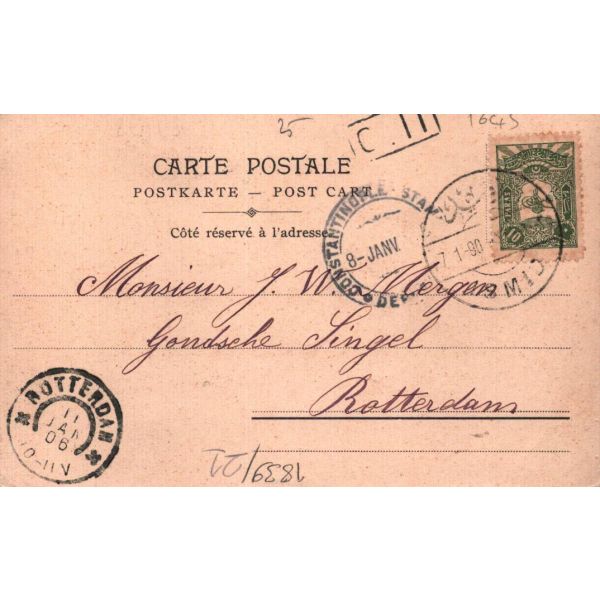 25
1645
CARTE POSTALE
POSTKARTE — POST CART
Côté réservé à l'adresse
CONSTANTINOPLE STAM
8-JANV
DEP
7-1-90
10
Monsieur J. W. Mergen
Gondsche Singel
Rotterdam
ROTTERDAM
11
JAN
06
10-11V
1839/21